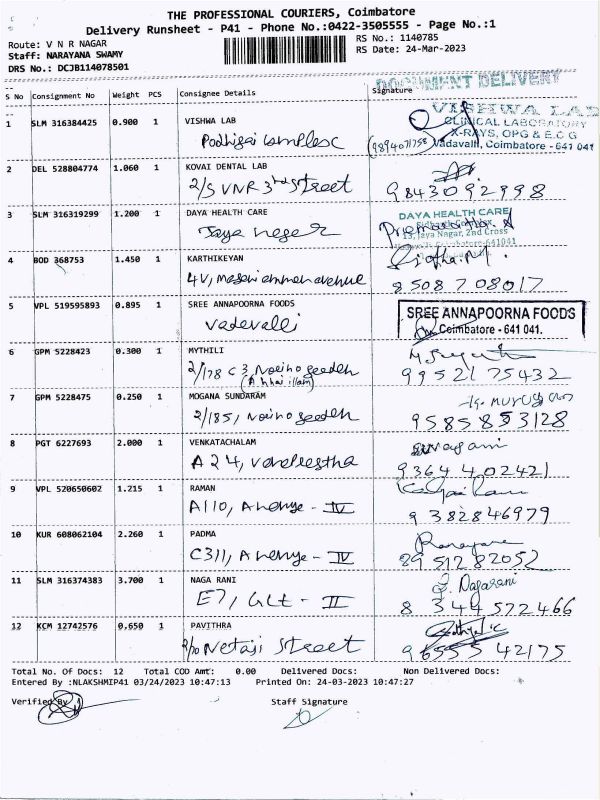 THE PROFESSIONAL COURIERS, Coimbatore
Delivery Runsheet - P41 - Phone No.:0422-3505555 - Page No.:1
Route: V N R NAGAR
Staff: NARAYANA SWAMY
DRS No.: DCJB114078501
RS No.: 1140785
RS Date: 24-Mar-2023
DOCUMENT DELIVERY
S No Consignment No Weight PCS Consignee Details Signature
1 SLM 316384425 0.900 1 VISHWA LAB
VISHWA LAB
CLINICAL LABORATORY
X-RAYS, OPG & E.C.G
Vadavalli, Coimbatore - 641 041
9894071758
2 DEL 528804774 1.060 1 KOVAI DENTAL LAB
2/5 VNR 3rd Street
9843092998
3 SLM 316319299 1.200 1 DAYA HEALTH CARE
Jaya
DAYA HEALTH CARE
13, Jaya Nagar, 2nd Cross
4 BOD 368753 1.450 1 KARTHIKEYAN
8508708017
5 VPL 519595893 0.895 1 SREE ANNAPOORNA FOODS
Vadevalli
SREE ANNAPOORNA FOODS
Coimbatore - 641 041.
6 GPM 5228423 0.300 1 MYTHILI
2/178 C3
9952175432
7 GPM 5228475 0.250 1 MOGANA SUNDARAM
2/185,
9585853128
8 PGT 6227693 2.000 1 VENKATACHALAM
A 24,
9364402421
9 VPL 520650602 1.215 1 RAMAN
A110, Avenye - IV
9382846979
10 KUR 608062104 2.260 1 PADMA
C311, Avenye - IV
8951282052
11 SLM 316374383 3.700 1 NAGA RANI
E7, - II
Nagarani
8344572466
12 KCM 12742576 0.650 1 PAVITHRA
Netaji Street
9655542175
Total No. Of Docs: 12 Total COD Amt: 0.00 Delivered Docs: Non Delivered Docs:
Entered By :NLAKSHMIP41 03/24/2023 10:47:13 Printed On: 24-03-2023 10:47:27
Verified By
Staff Signature